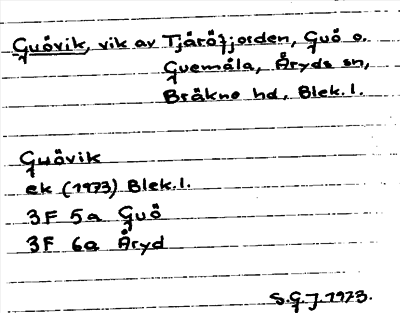 Guövik, vik av Tjäröfjorden, Guö o.
Guemåla, Åryds sn,
Bräkne hd, Blek.l.
Guövik
ek (1973) Blek.l.
3F 5a Guö
3F 6a Åryd
S.G.J. 1973.